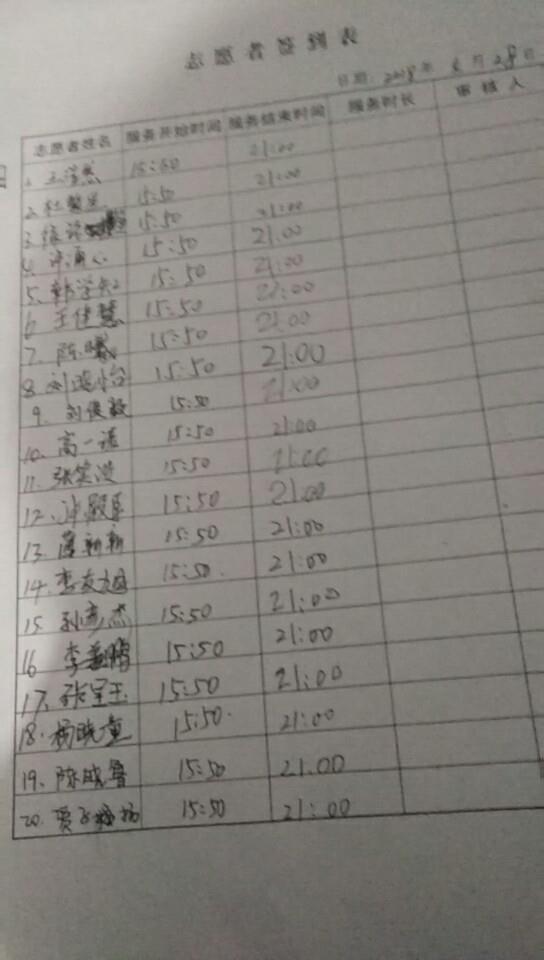 志愿者签到表
日期：2018年 6月28日
志愿者姓名 服务开始时间 服务结束时间 服务时长 审核人
1. 15:50 21:00
2. 15:50 21:00
3. 15:50 21:00
4. 15:50 21:00
5. 15:50 21:00
6. 王佳慧 15:50 21:00
7. 陈曦 15:50 21:00
8. 15:50 21:00
9. 刘俊毅 15:50 21:00
10. 高一诺 15:50 21:00
11. 15:50 21:00
12. 15:50 21:00
13. 15:50 21:00
14. 15:50 21:00
15. 孙彦杰 15:50 21:00
16 15:50 21:00
17. 15:50 21:00
18. 杨晓童 15:50 21:00
19. 15:50 21:00
20. 15:50 21:00